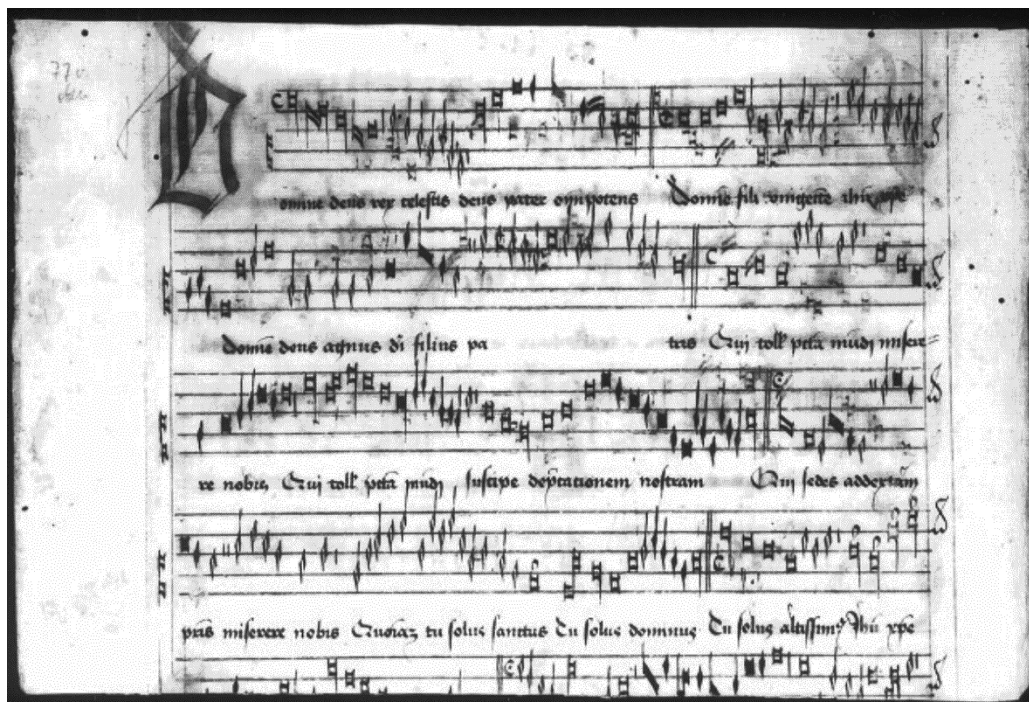 77v
Domine deus rex celestis deus pater omnipotens Domine fili unigenite ihu xpe
Domine deus agnus di filius pa tris Qui toll pcta mudi misere=
re nobis Qui toll pcta mudi suscipe depcacionem nostram Qui sedes addexteram
pris miserere nobis Quoniaz tu solus sanctus Tu solus dominus Tu solus altissimus Ihu xpe